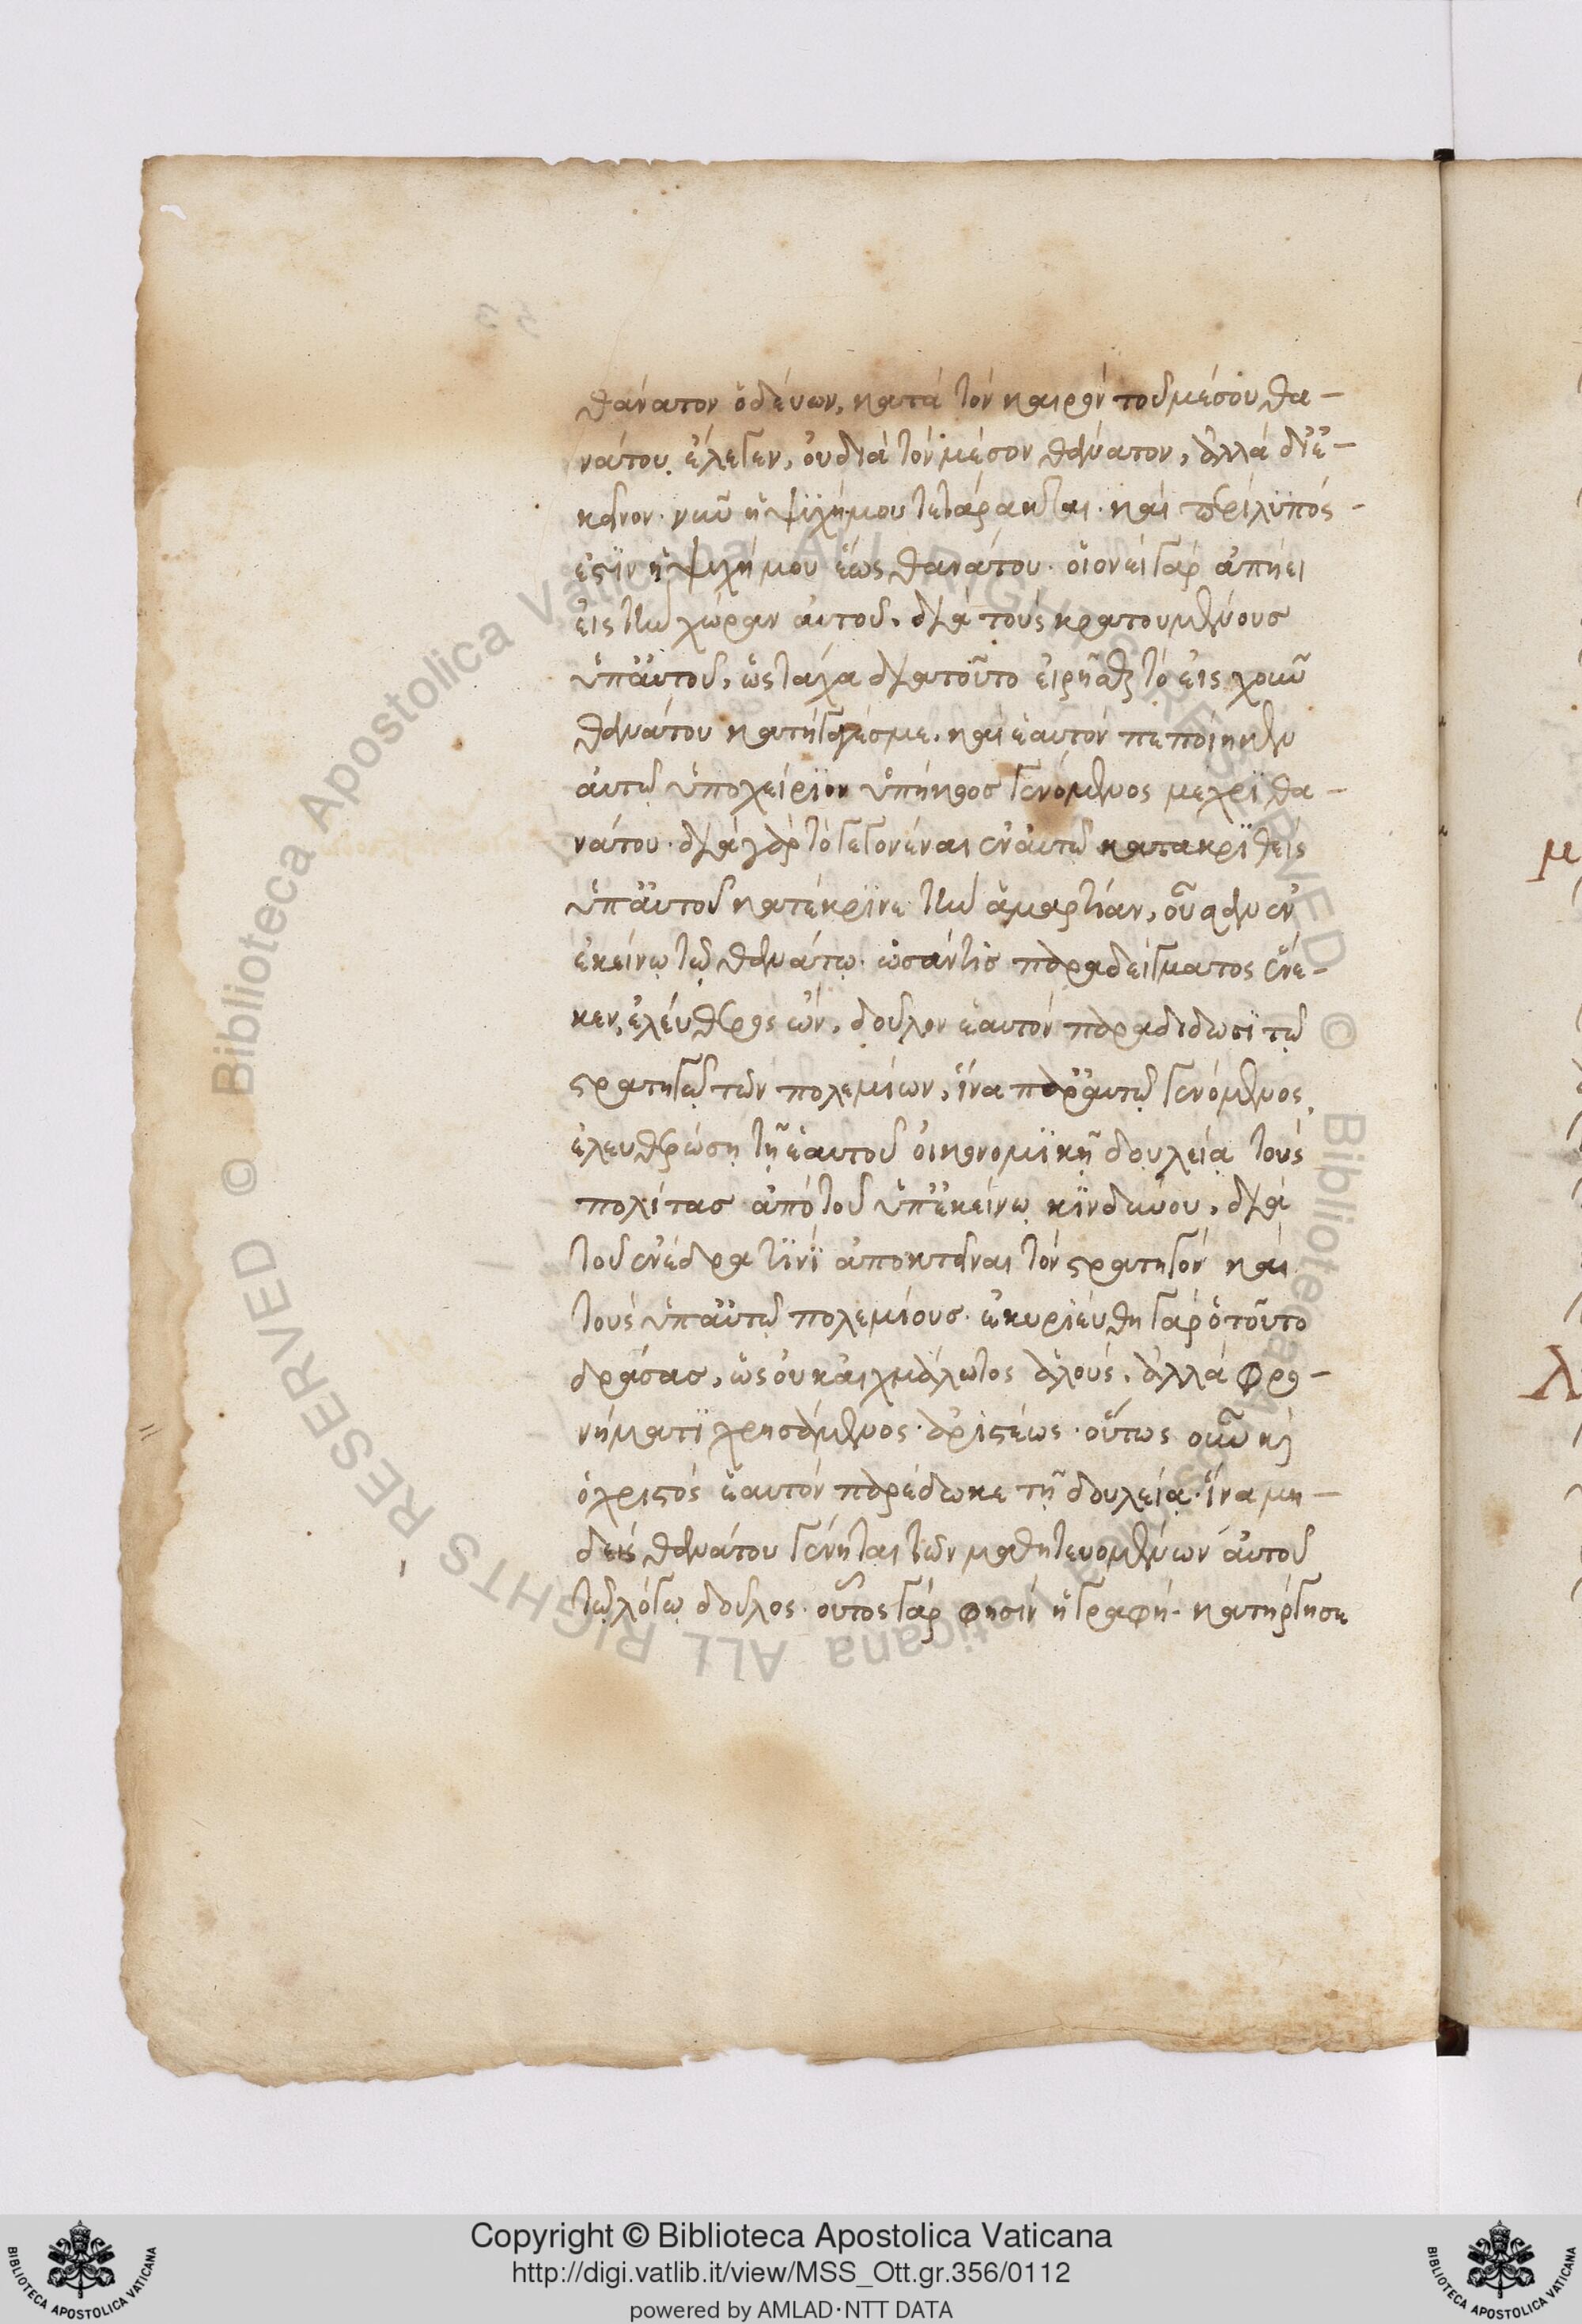 θάνατον ὁδεύων, κατὰ τὸν καιρὸν τοῦ μέσου θα-
νάτου ἔλεγεν, οὐ διὰ τὸν μέσον θάνατον, ἀλλὰ δι' ἐ-
κεῖνον· νῦν ἡ ψυχή μου τετάρακται· καὶ περίλυπός
ἐστιν ἡ ψυχή μου ἕως θανάτου· οἱονεὶ γὰρ ἀπῄει
εἰς τὴν χώραν αὐτοῦ, διὰ τοὺς κρατουμένους
ὑπ' αὐτοῦ, ὡς τάχα διὰ τοῦτο εἰρῆσθαι τὸ εἰς χοῦν
θανάτου κατήγαγές με, καὶ ἑαυτὸν πεποίηκεν
αὐτῷ ὑποχείριον ὑπήκοος γενόμενος μέχρι θα-
νάτου· διὰ γὰρ τὸ γεγονέναι ἐν αὐτῷ κατακριθεὶς
ὑπ' αὐτοῦ κατέκρινε τὴν ἁμαρτίαν, οὖσαν ἐν
ἐκείνῳ τῷ θανάτῳ· ὡς ἄν τις παραδείγματος ἕνε-
κεν, ἐλεύθερος ὢν, δοῦλον ἑαυτὸν παραδίδωσι τῷ
στρατηγῷ τῶν πολεμίων, ἵνα παρ' αὐτῷ γενόμενος
ἐλευθερώσῃ τῇ ἑαυτοῦ οἰκονομικῇ δουλείᾳ τοὺς
πολίτας ἀπὸ τοῦ ὑπ' ἐκείνῳ κινδύνου, διὰ
τοῦ ἐνέδρᾳ τινὶ ἀποκτεῖναι τὸν στρατηγὸν καὶ
τοὺς ὑπ' αὐτῷ πολεμίους· ἐκυριεύθη γὰρ ὁ τοῦτο
δράσας, ὡς οὐκ αἰχμάλωτος ἁλούς, ἀλλὰ φρο-
νήματι χρησάμενος ἀριστέως· οὕτως οὖν καὶ
ὁ χριστὸς ἑαυτὸν παρέδωκε τῇ δουλείᾳ· ἵνα μη-
δεὶς θανάτου γένηται τῶν μαθητευομένων αὐτοῦ
τῷ λόγῳ δοῦλος· οὗτος γάρ φησιν ἡ γραφή· κατήργησε
Copyright © Biblioteca Apostolica Vaticana
http://digi.vatlib.it/view/MSS_Ott.gr.356/0112
powered by AMLAD·NTT DATA